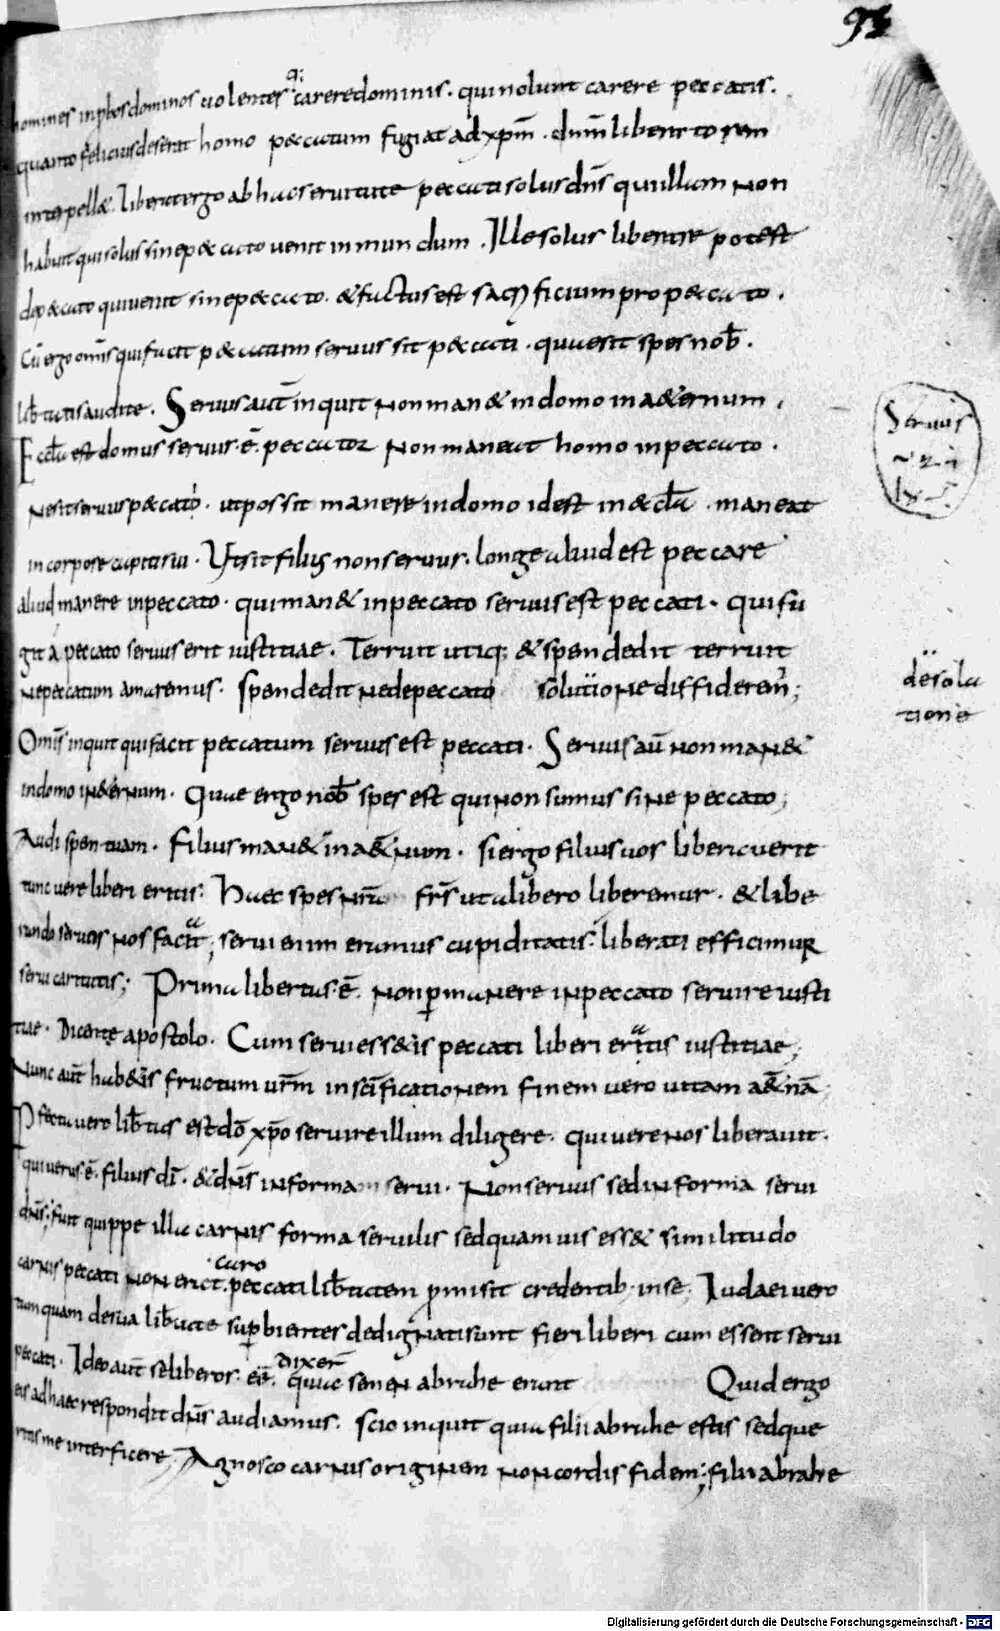 93
homines inpbos dominos uolentes q: carere dominis. qui nolunt carere peccatis.
quanto felicius deserat homo peccatum fugiat ad xp̄m. dn̄m liberatorem
interpellæ. liberat ergo ab hac seruitute peccati solus dn̄s qui illam non
habuit qui solus sine p&cato uenit in mundum. Ille solus liberare potest
dep&cato qui uenit sine p&cato. & factus est sacrificium pro p&cato.
Cū ergo om̄s qui facit p&catum seruus sit p&cati. quae sit spes nob̄.
lib̄tatis audite. Seruus aut̄ inquit non man& in domo in a&ernum.
Eccla est domus seruus .ē. peccator Non maneat homo in peccato.
Ne sit seruus p&cati. ut possit manere in domo id est in &cl̄a. maneat
in corpore capitis sui. Ut sit filius non seruus. longe aliud est peccare
aliud manere in peccato. qui man& in peccato seruus est peccati. qui fu
git a peccato seruus erit iustitiae. Terruit utiq; & spem dedit terruit
ne peccatum amaremus. spem dedit ne de peccato solutione diffiderem̄;
Om̄is inquit qui facit peccatum seruus est peccati. Seruus aū non man&
in domo in &ernum. Quae ergo nob̄ spes est qui non sumus sine peccato;
Audi spem tuam. filius man& in a&ernum. si ergo filius uos liberauerit
tunc uere liberi eritis: Haec spes nr̄a fr̄s ut a libero liberemur. & libe
rando seruos nos faciat; serui enim eramus cupiditatis: liberati efficimur
serui caritatis; Prima libertas .ē. non p̱manere in peccato seruire iusti
tiae. Dicente apostolo. Cum serui ess&is peccati liberi eratis iustitiae;
Nunc aut̄ hab&is fructum ur̄m in sc̄ificationem finem uero uitam a&nā;
Pfecta uero lib̄tas est dō xp̄o seruire illum diligere. qui uere nos liberauit.
qui uerus .ē. filius dī. & dn̄s in forma serui. Non seruus sed in forma serui
dn̄s; fuit quippe illa carnis forma seruilis sed quamuis ess& similitudo
carnis peccati non erat caro peccati lib̄tatem p̱misit credentib; in se; Iudaei uero
tamquam de sua lib̄tate sup̱bientes dedignati sunt fieri liberi cum essent serui
peccati. Ideo aut̄ se liberos eē dixer̄ quia semen abrahe erant Quid ergo
eis ad haec respondit dn̄s audiamus. scio inquit quia filii abrahe estis sed que
ritis me interficere; Agnosco carnis originem non cordis fidem; filii abrahe
Seruus
de solu
tione
Digitalisierung gefördert durch die Deutsche Forschungsgemeinschaft - DFG